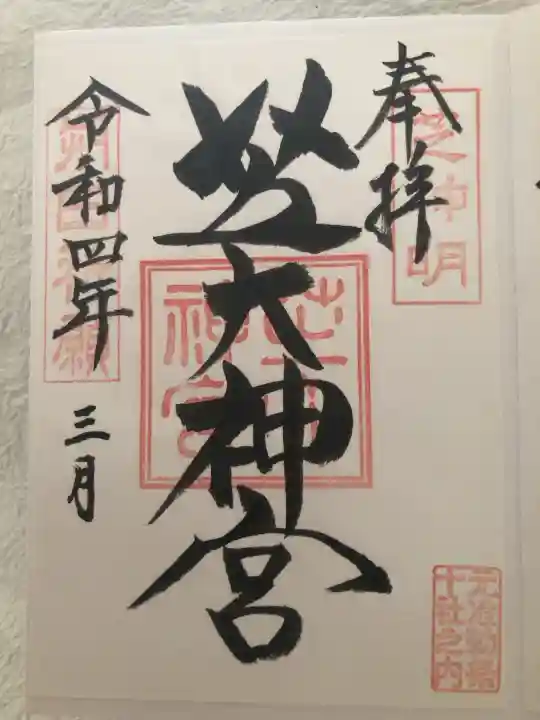 奉拝
芝神明
芝大神宮
芝大神宮
令和四年 三月
元准勅祭
十社之内